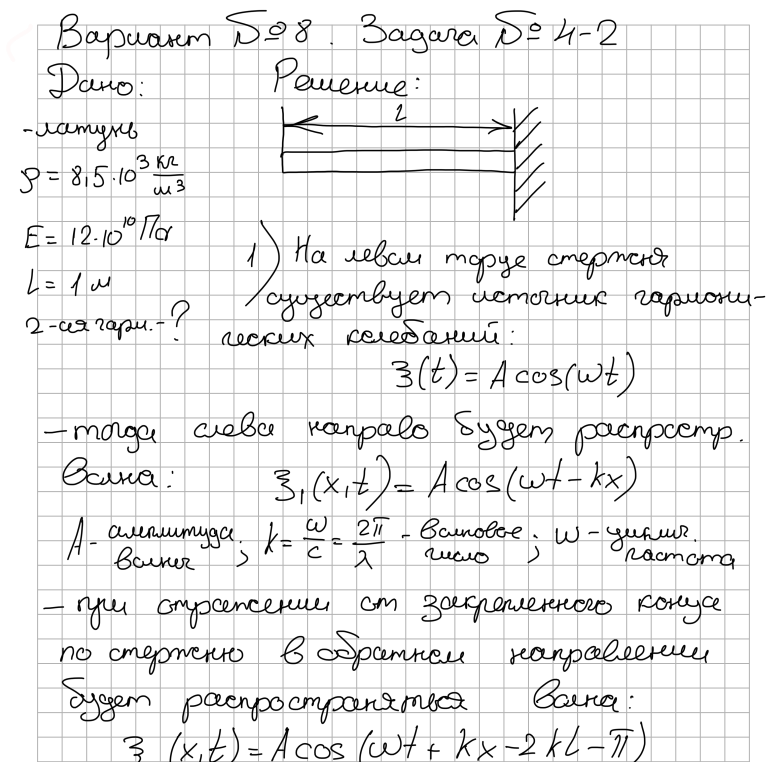 Вариант №8. Задача № 4-2
Дано: Решение:
l
-латунь
ρ = 8,5·10³ кг/м³
E = 12·10¹⁰ Па
L = 1 м
2-ая гарм. - ?
1) На левом торце стержня
существует источник гармони-
ческих колебаний:
ξ(t) = A cos(ωt)
- тогда слева направо будет распростр.
волна: ξ₁(x,t) = A cos(ωt - kx)
A - амплитуда волны; k = ω/c = 2π/λ - волновое число; ω - циклич. частота
- при отражении от закрепленного конца
по стержню в обратном направлении
будет распространяться волна:
ξ (x,t) = A cos (ωt + kx - 2kL - π)